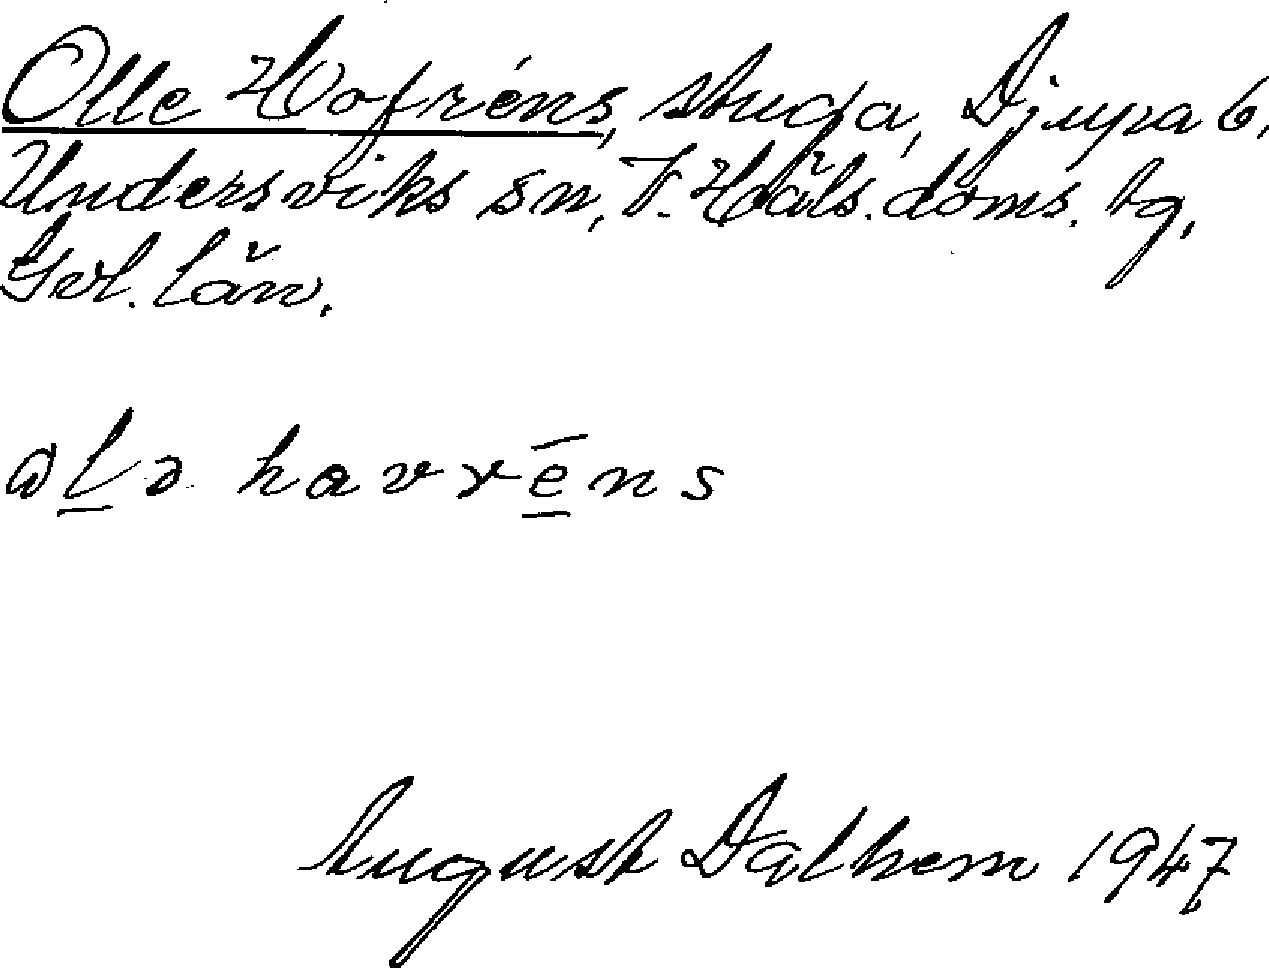 Olle Hofréns, stuga, Djupa b,
Undersviks sn, V. Häls. doms. tg,
Gvl. län.
ɷlə havrēns
August Dalhem 1947